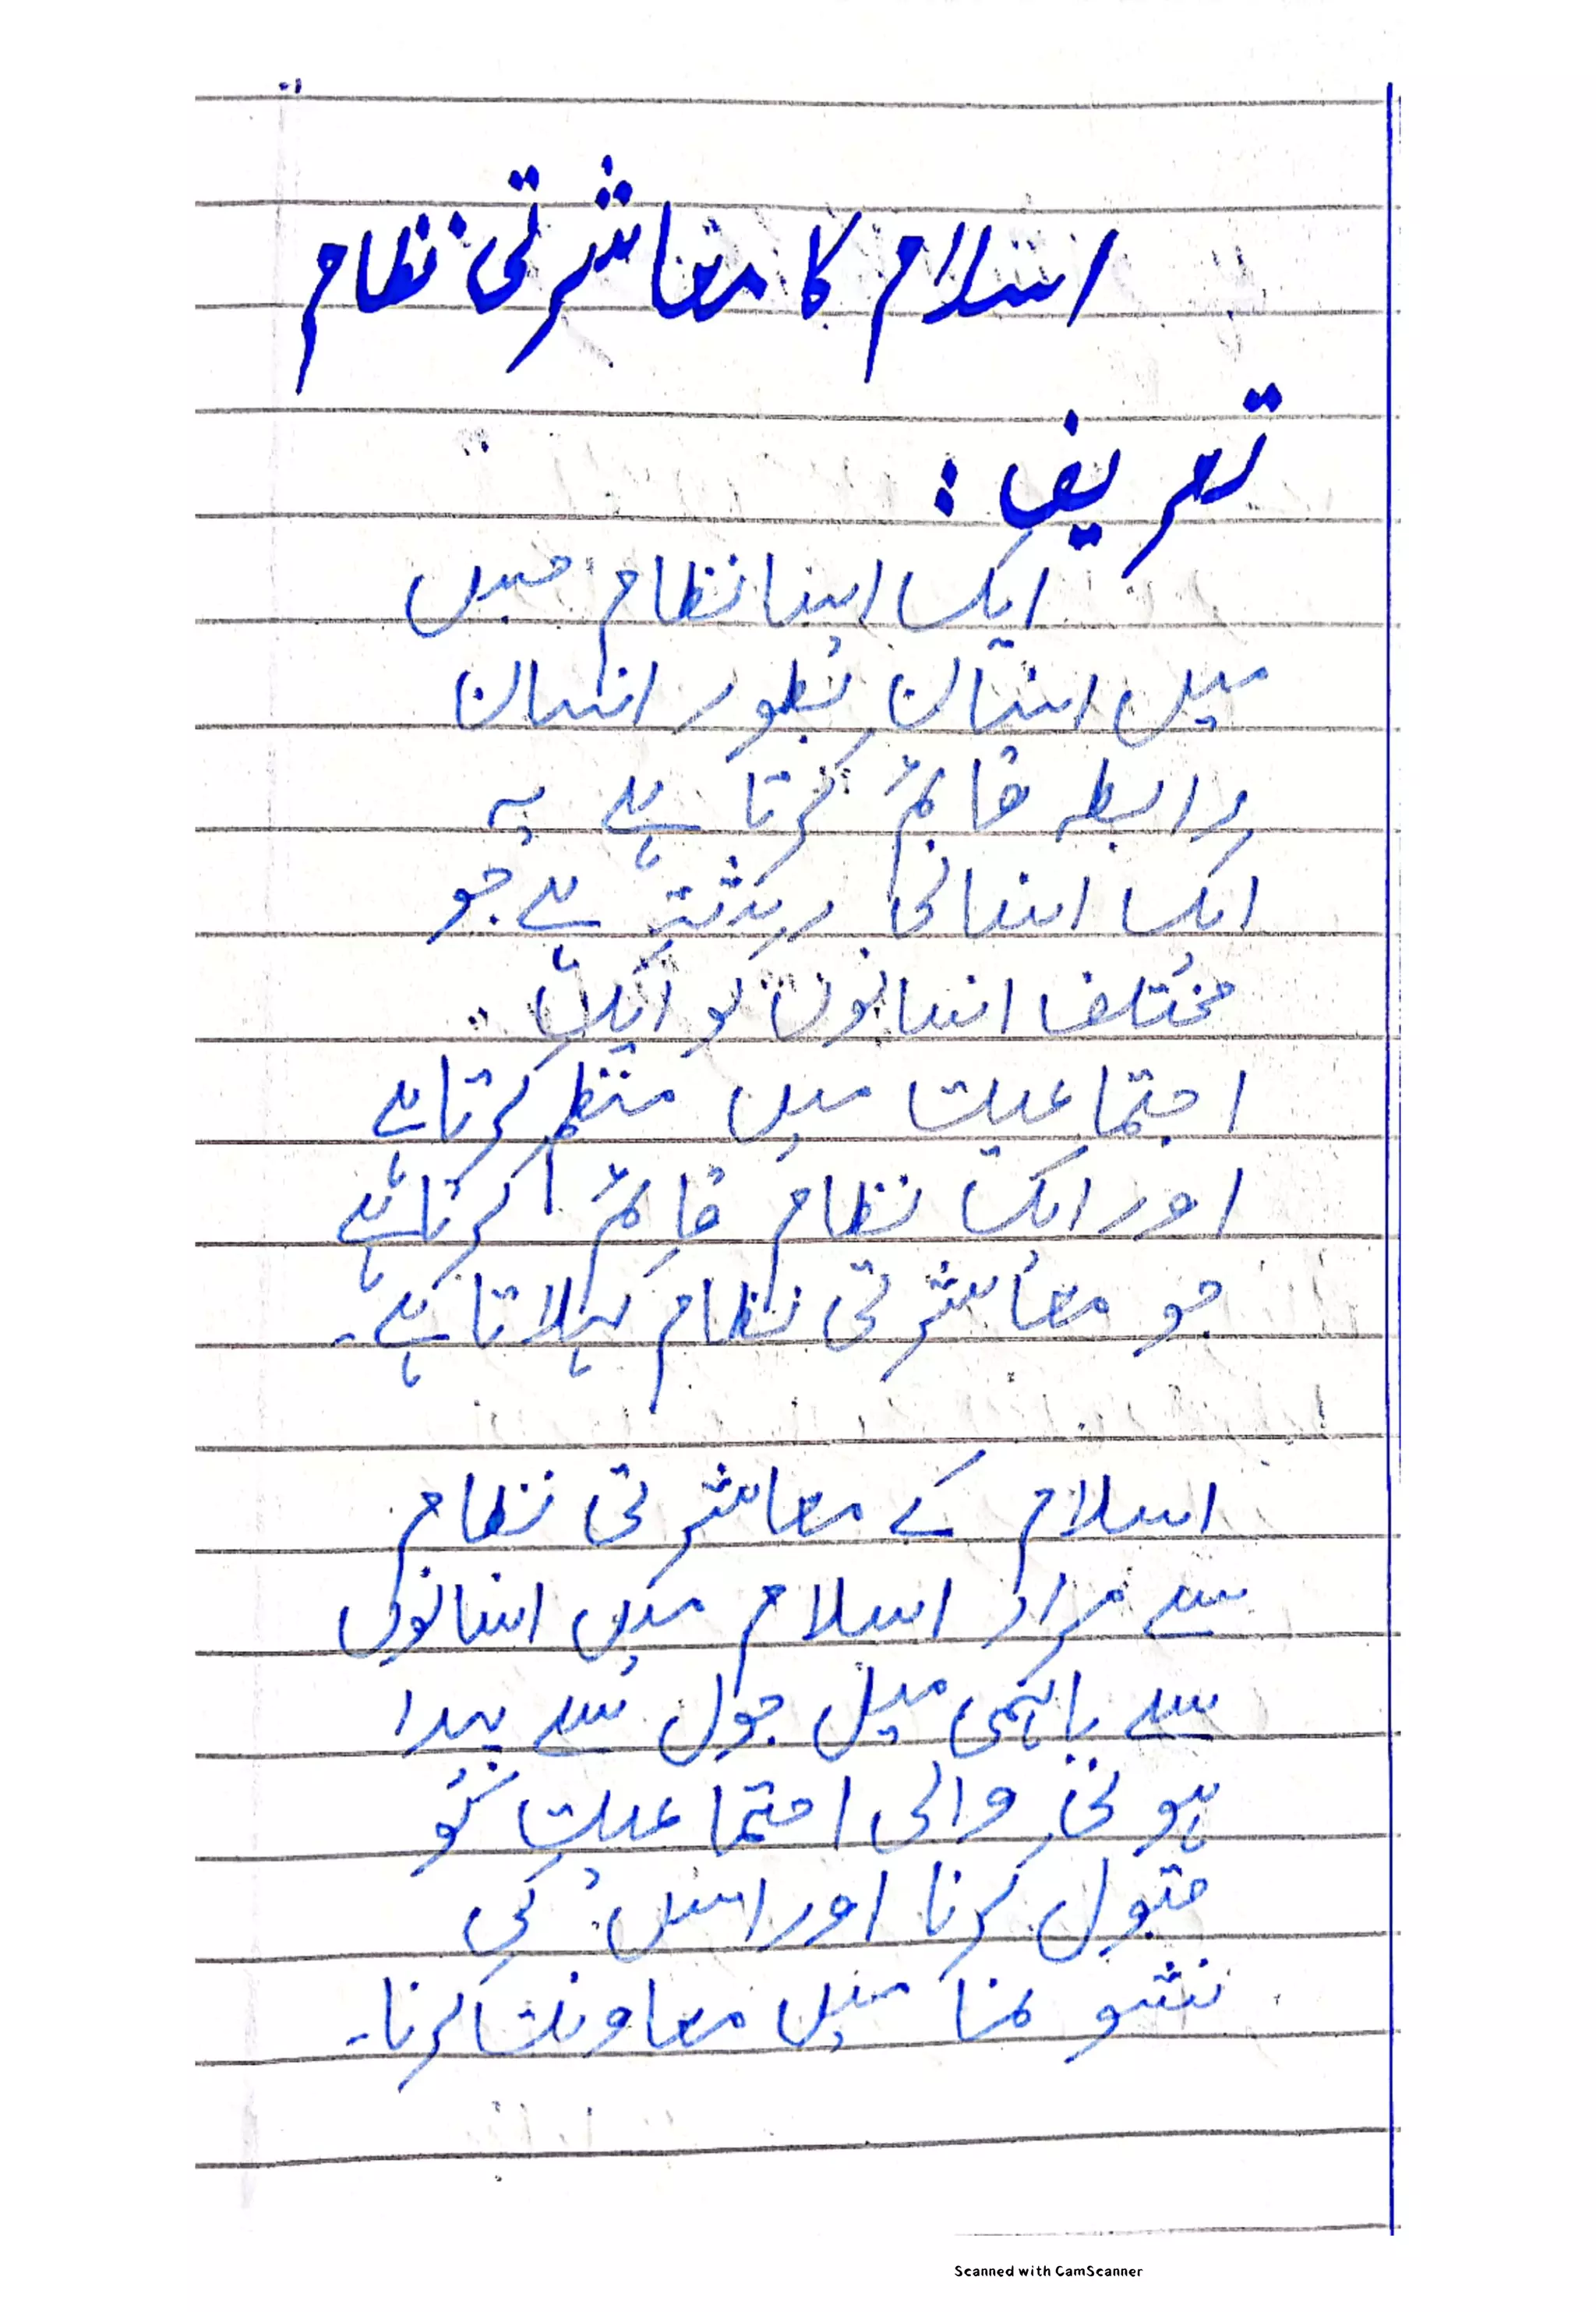 اسلام کا معاشرتی نظام
تعریف :
ایک ایسا نظام جس
میں انسان بطور انسان
رابطہ قائم کرتا ہے یہ
ایک انسانی رشتہ ہے جو
مختلف انسانوں کو ایک
اجتماعیت میں منظم کرتا ہے
اور ایک نظام قائم کرتا ہے
جو معاشرتی نظام کہلاتا ہے۔
اسلام کے معاشرتی نظام
سے مراد اسلام میں انسانوں
سے باہمی میل جول سے پیدا
ہونے والی اجتماعیت کو
قبول کرنا اور اس کی
نشو نما میں معاونت کرنا۔
Scanned with CamScanner